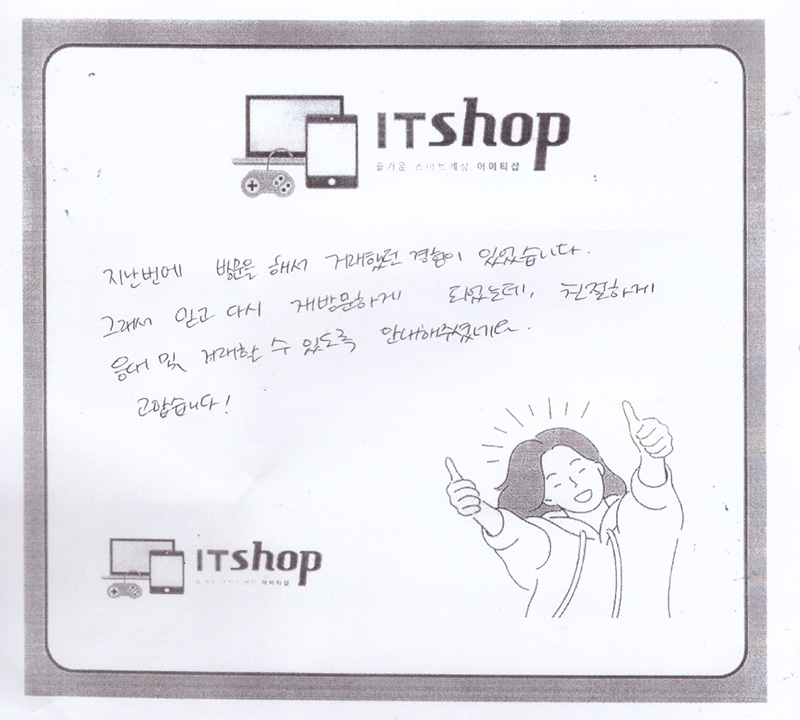 ITshop
즐거운 스마트세상 아이티샵
지난번에 방문을 해서 거래했던 경험이 있었습니다.
그래서 믿고 다시 재방문하게 되었는데, 친절하게
응대 및 거래할 수 있도록 안내해주셨네요.
고맙습니다!
ITshop
아이티샵